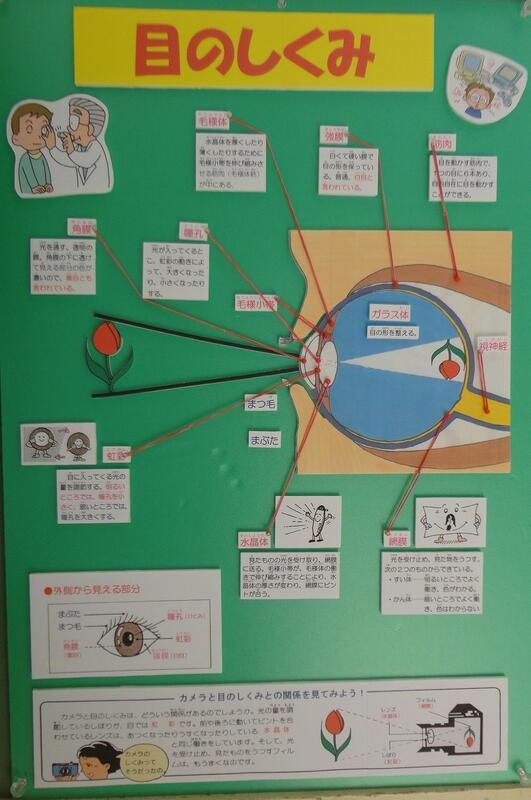 目のしくみ
毛様体
水晶体を厚くしたり
薄くしたりするために
毛様小帯を伸び縮みさ
せる筋肉(毛様体筋)
が中にある。
強膜
白くて硬い膜で
目の形を保ってい
る。普通、白目と
言われている。
筋肉
目を動かす筋肉で、
1つの目に6本あり、
自由自在に目を動かす
ことができる。
角膜
光を通す、透明の
膜。角膜の下に透け
て見える部分の色が
濃いので、黒目とも
言われている。
瞳孔
光が入ってくると
ころ。虹彩の動きによ
って、大きくなった
り、小さくなったり
する。
毛様小帯
ガラス体
目の形を整える。
視神経
まつ毛
まぶた
虹彩
目に入ってくる光の
量を調節する。明るい
ところでは、瞳孔を小
さく、暗いところでは、
瞳孔を大きくする。
水晶体
見たものの光を受け取り、網膜
に送る。毛様小帯が、毛様体の働
きで伸び縮みすることにより、水
晶体の厚さが変わり、網膜にピン
トが合う。
網膜
光を受け止め、見た物をうつす。
次の2つのものからできている。
・すい体…明るいところでよく
働き、色がわかる。
・かん体…暗いところでよく働
き、色はわからない
●外側から見える部分
まぶた
まつ毛
角膜
(黒目)
瞳孔(ひとみ)
虹彩
強膜(白目)
カメラと目のしくみとの関係を見てみよう!
カメラと目のしくみは、どういう関係があるのでしょうか。光の量を調
節しているしぼりが、目では虹彩です。前や後ろに動いてピントを合
わせているレンズは、あつくなったりうすくなったりしている 水晶体
と同じ働きをしています。そして、光
を受け止め、見たものをうつすフィル
ムは、もうまくなのです。
カメラの
しくみって
そうだったの。
フィルム
(網膜)
レンズ
(水晶体)
しぼり
(虹彩)